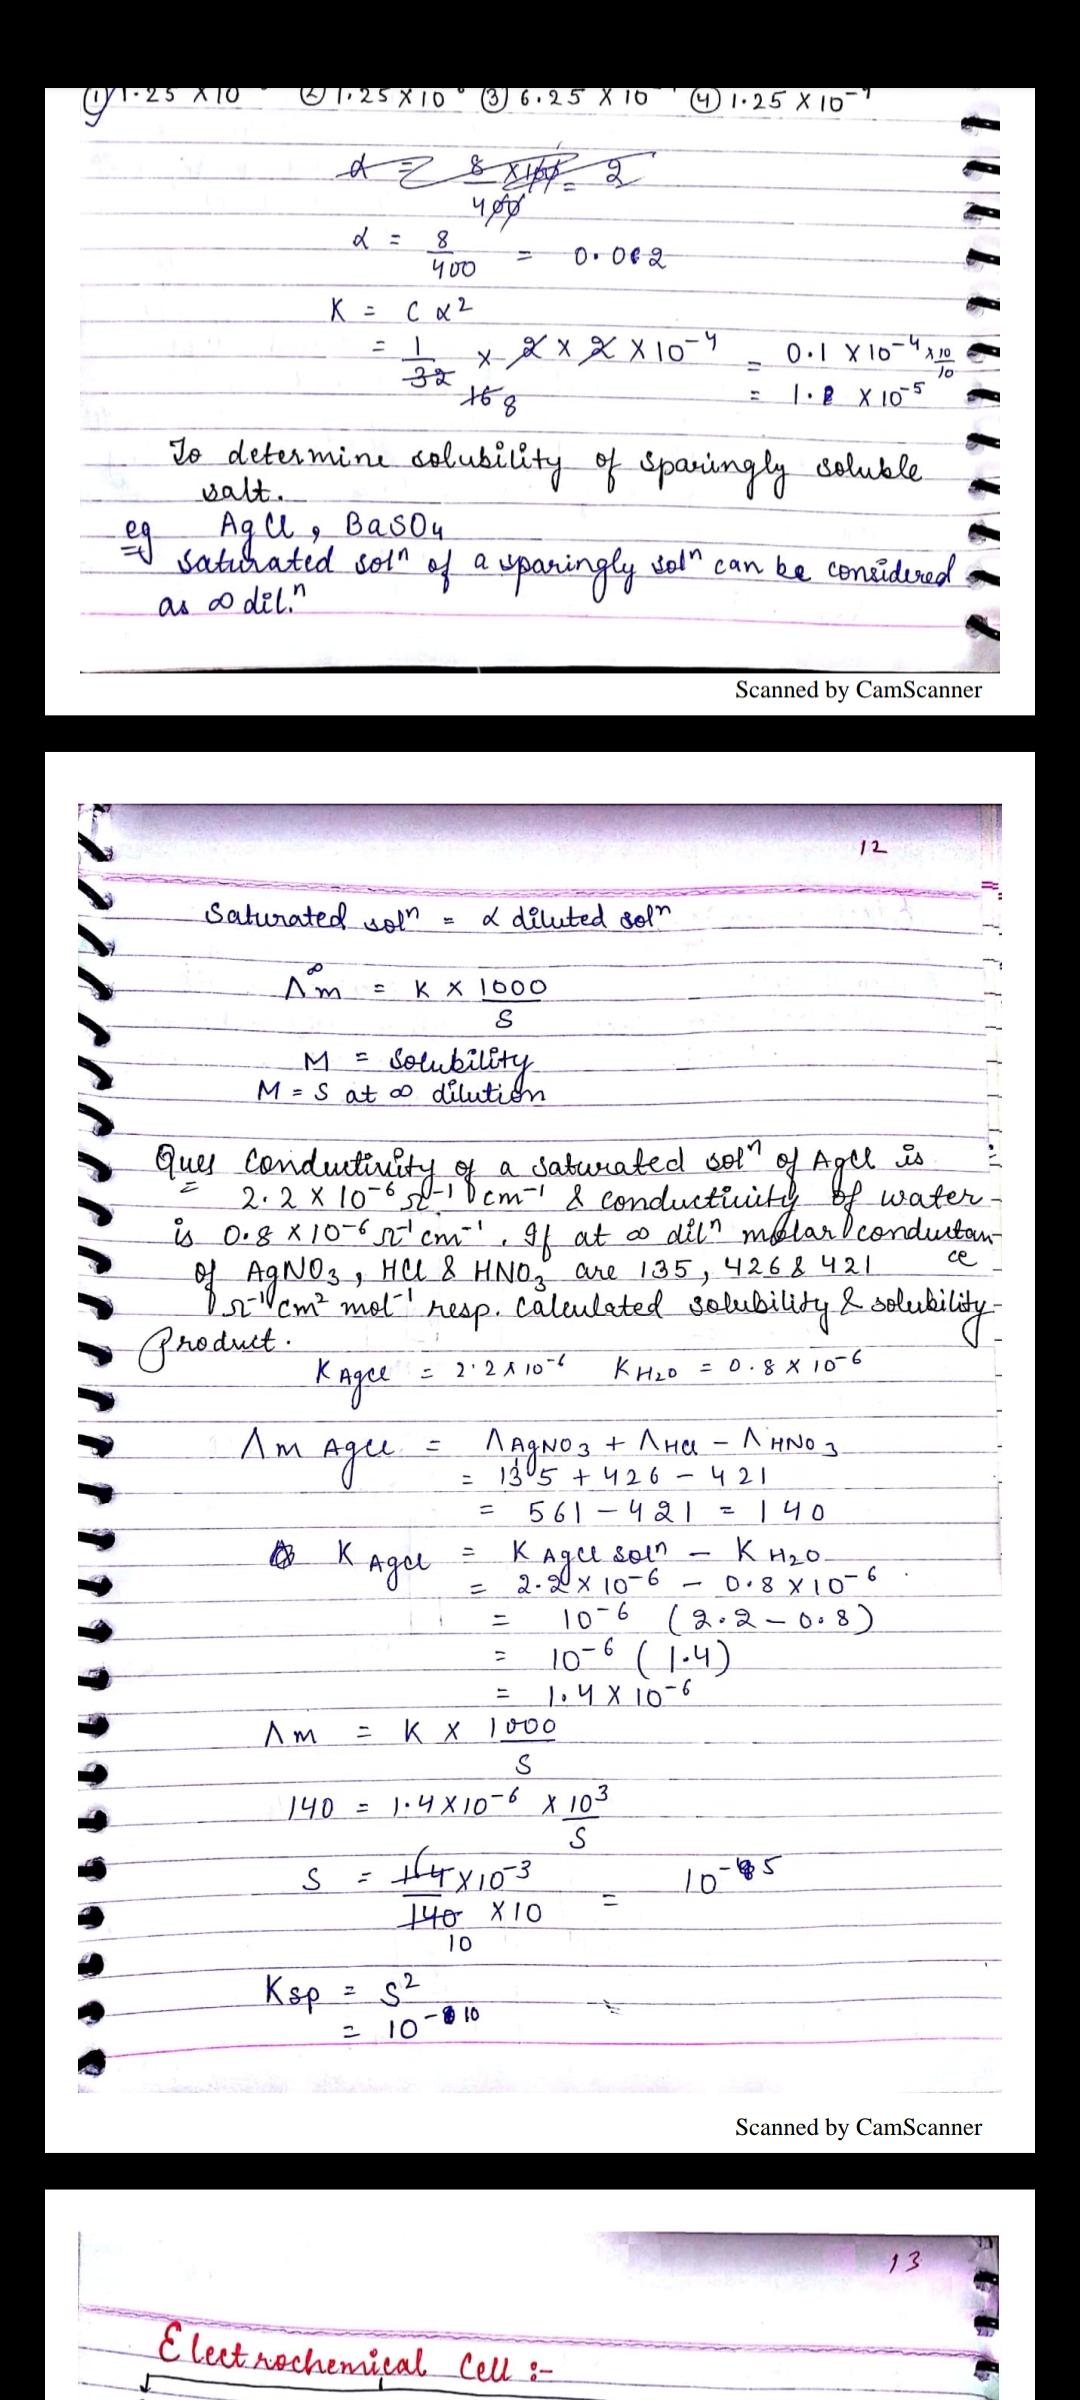 (1) 1.25 X 10 (2) 1.25 X 10 (3) 6.25 X 10 (4) 1.25 X 10
α = 8 X 100 = 2
400
α = 8/400 = 0.02
K = C α²
= 1/32 x 2 x 2 X 10⁻⁴ = 0.1 X 10⁻⁴ x 10/10
16 8 = 1. X 10⁻⁵
To determine solubility of sparingly soluble
salt.
eg AgCl, BaSO4
saturated solⁿ of a sparingly solⁿ can be considered
as ∞ dil.ⁿ
Scanned by CamScanner
12
Saturated solⁿ = α diluted solⁿ
Λ∞m = K X 1000/S
M = Solubility
M = S at ∞ dilution
Ques Conductivity of a saturated solⁿ of AgCl is
2.2 X 10⁻⁶ Ω⁻¹ cm⁻¹ & conductivity of water
is 0.8 X 10⁻⁶ Ω⁻¹ cm⁻¹. If at ∞ dilⁿ molar conductan-
ce
of AgNO3, HCl & HNO3 are 135, 426 & 421
Ω⁻¹ cm² mol⁻¹ resp. Calculated solubility & solubility-
Product.
K AgCl = 2.2 X 10⁻⁶ K H2O = 0.8 X 10⁻⁶
Λm AgCl = Λ AgNO3 + Λ HCl - Λ HNO3
= 135 + 426 - 421
= 561 - 421 = 140
K AgCl = K AgCl soln - K H2O
= 2.2 X 10⁻⁶ - 0.8 X 10⁻⁶
= 10⁻⁶ (2.2 - 0.8)
= 10⁻⁶ (1.4)
= 1.4 X 10⁻⁶
Λm = K X 1000/S
140 = 1.4 X 10⁻⁶ X 10³/S
S = 14 X 10⁻³ / 140 X 10 = 10⁻⁵
10
Ksp = S²
= 10⁻¹⁰
Scanned by CamScanner
13
Electrochemical Cell :-